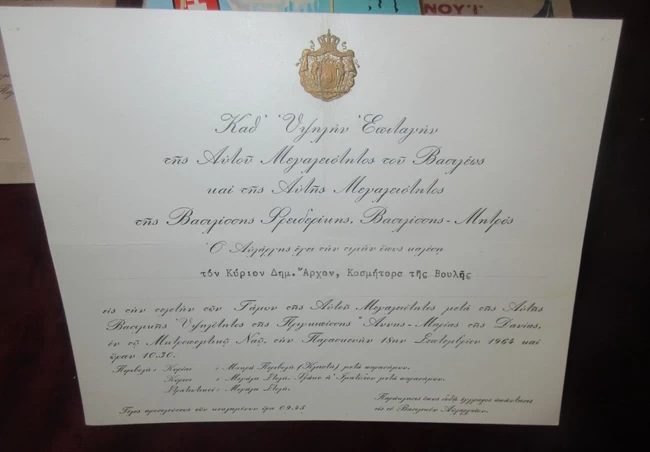 ΝΟΥ'Γ
Καθ' Ὑψηλὴν Ἐπιταγὴν
τῆς Αὐτοῦ Μεγαλειότητος τοῦ Βασιλέως
καὶ τῆς Αὐτῆς Μεγαλειότητος
τῆς Βασιλίσσης Φρειδερίκης, Βασιλίσσης-Μητρός
Ὁ Αὐλάρχης ἔχει τὴν τιμὴν ὅπως καλέσῃ
τὸν Κύριον Δημ. Ἄρχον, Κοσμήτορα τῆς Βουλῆς
εἰς τὴν τελετὴν τῶν Γάμων τῆς Αὐτοῦ Μεγαλειότητος μετὰ τῆς Αὐτῆς
Βασιλικῆς Ὑψηλότητος τῆς Πριγκιπίσσης Ἄννης-Μαρίας τῆς Δανίας,
ἐν τῷ Μητροπολιτικῷ Ναῷ, τὴν Παρασκευὴν 18ην Σεπτεμβρίου 1964 καὶ
ὥραν 10.30.
Περιβολὴ - Κυρίαι : Μακρὰ Περιβολὴ μετὰ παρασήμων.
Κύριοι : Μεγάλη Στολή. Φράκο μετὰ παρασήμων.
Στρατιωτικοί : Μεγάλη Στολή.
Παρακλησις ὅπως
Τέρμα προσελεύσεως τῶν καλουμένων ὥρα 09.45
εἰς τὸ Βασιλικὸν Αὐλαρχεῖον.